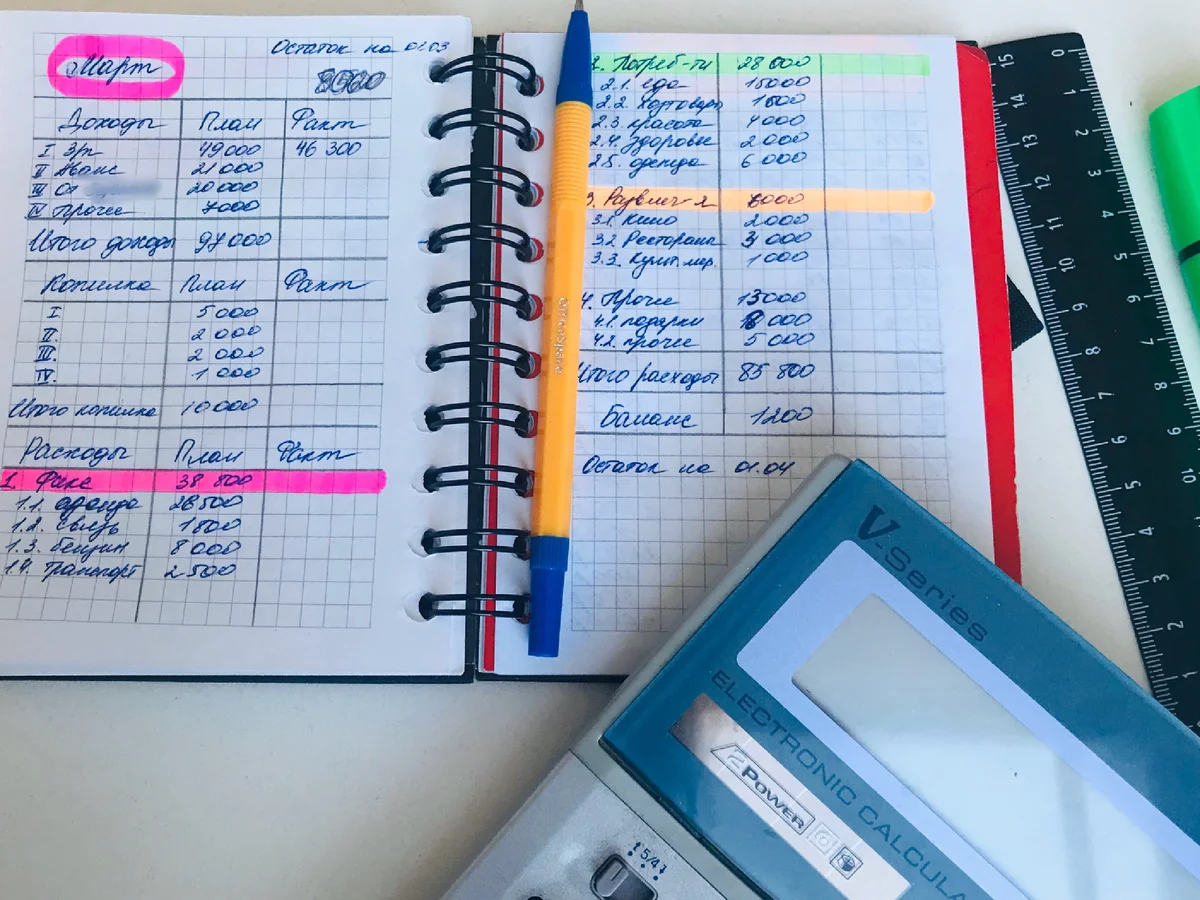 Март
Остаток на 01.03
8560
Доходы План Факт
I З/п 49 000 46 300
II Аванс 21 000
III От 20 000
IV Прочее 7000
Итого доходы 97 000
Копилка План Факт
I. 5 000
II. 2 000
III. 2 000
IV. 1 000
Итого копилка 10 000
Расходы План Факт
1. Фикс 38 800
1.1. аренда 26 500
1.2. связь 1 800
1.3. бензин 8 000
1.4. транспорт 2 500
2. Потреб-ти 28 000
2.1. еда 15000
2.2. хозтовары 1000
2.3 красота 4 000
2.4. здоровье 2 000
2.5. одежда 6 000
3. Развлеч-я 6000
3.1. Кино 2000
3.2 Рестораны 3 000
3.3. Культ. мер. 1 000
4. Прочее 13000
4.1. подарки 8 000
4.2. прочее 5 000
Итого расходы 85 800
Баланс 1200
Остаток на 01.04
V-Series
ELECTRONIC CALCULA
2 POWER
5/4
15 14 13 12 11 10 9 8 7 6 5 4 3 2 1
0 1 2 3 4 5 6 7 8 9 10